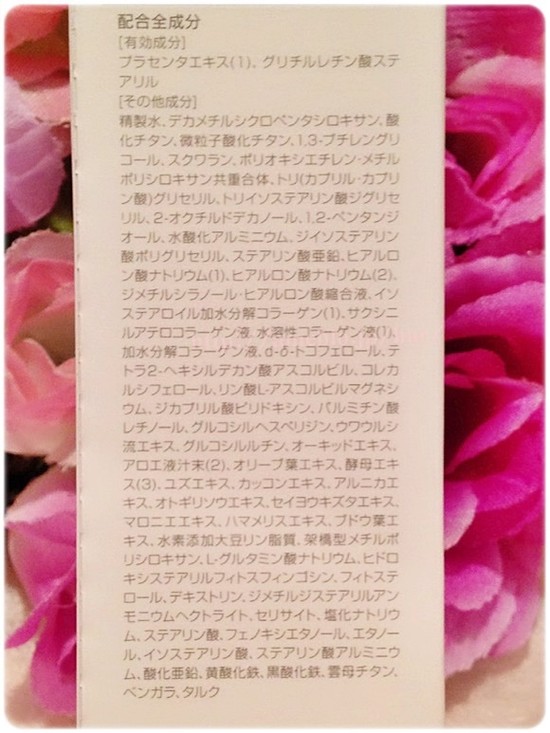 配合全成分
[有効成分]
プラセンタエキス(1)、グリチルレチン酸ステ
アリル
[その他成分]
精製水、デカメチルシクロペンタシロキサン、酸
化チタン、微粒子酸化チタン、1,3-ブチレングリ
コール、スクワラン、ポリオキシエチレン・メチル
ポリシロキサン共重合体、トリ(カプリル・カプリ
ン酸)グリセリル、トリイソステアリン酸ジグリセ
リル、2-オクチルドデカノール、1,2-ペンタンジ
オール、水酸化アルミニウム、ジイソステアリン
酸ポリグリセリル、ステアリン酸亜鉛、ヒアルロ
ン酸ナトリウム(1)、ヒアルロン酸ナトリウム(2)、
ジメチルシラノール・ヒアルロン酸縮合液、イソ
ステアロイル加水分解コラーゲン(1)、サクシニ
ルアテロコラーゲン液、水溶性コラーゲン液(1)、
加水分解コラーゲン液、d-δ-トコフェロール、テ
トラ2-ヘキシルデカン酸アスコルビル、コレカ
ルシフェロール、リン酸L-アスコルビルマグネシ
ウム、ジカプリル酸ピリドキシン、パルミチン酸
レチノール、グルコシルヘスペリジン、ウワウルシ
流エキス、グルコシルルチン、オーキッドエキス、
アロエ液汁末(2)、オリーブ葉エキス、酵母エキ
ス(3)、ユズエキス、カッコンエキス、アルニカエ
キス、オトギリソウエキス、セイヨウキズタエキス、
マロニエエキス、ハマメリスエキス、ブドウ葉エ
キス、水素添加大豆リン脂質、架橋型メチルポ
リシロキサン、L-グルタミン酸ナトリウム、ヒドロ
キシステアリルフィトスフィンゴシン、フィトステ
ロール、デキストリン、ジメチルジステアリルアン
モニウムヘクトライト、セリサイト、塩化ナトリウ
ム、ステアリン酸、フェノキシエタノール、エタノー
ル、イソステアリン酸、ステアリン酸アルミニウ
ム、酸化亜鉛、黄酸化鉄、黒酸化鉄、雲母チタン、
ベンガラ、タルク